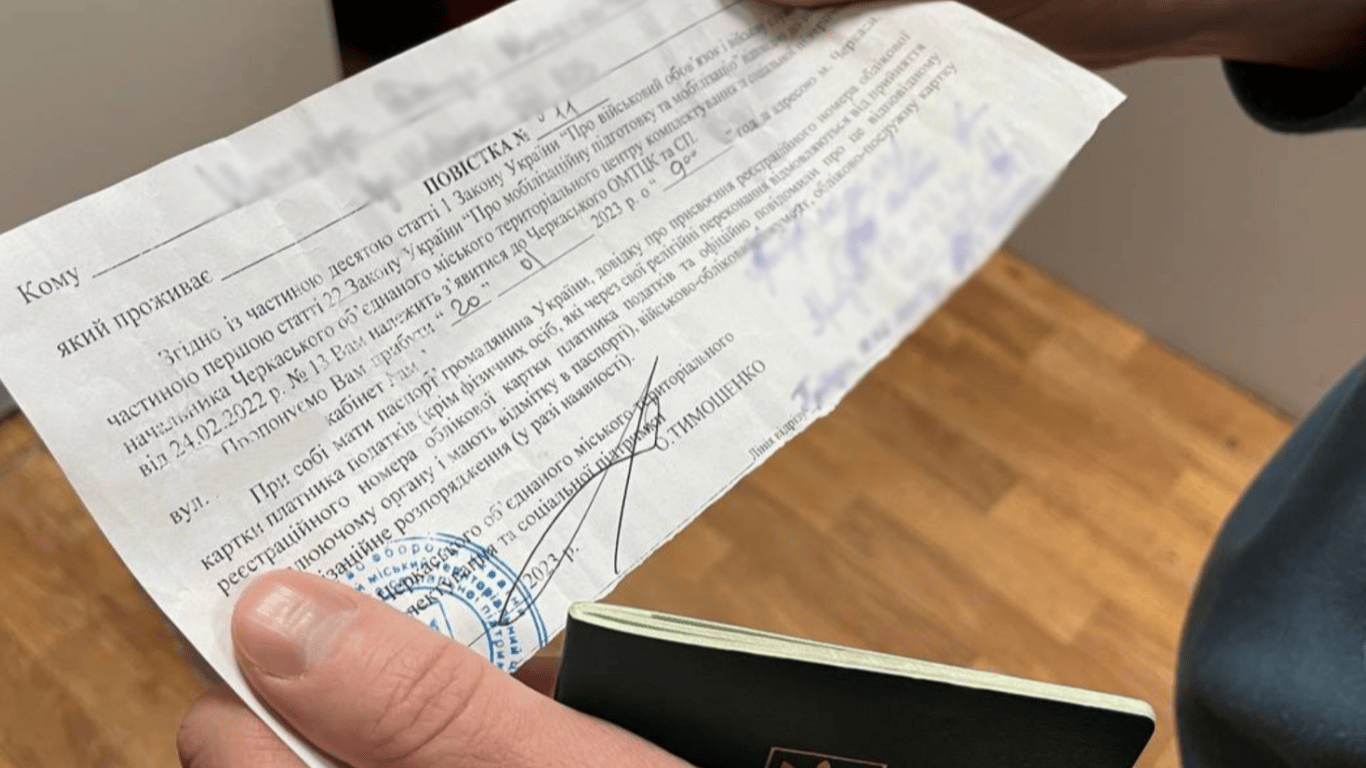 ПОВІСТКА № 11
Кому
який проживає
Згідно із частиною десятою статті 1 Закону України “Про військовий обов’язок і
частиною першою статті 22 Закону України “Про мобілізаційну підготовку та мобілізацію”
начальника Черкаського об’єднаного міського територіального центру комплектування та соціальної
від 24.02.2022 р. № 13 Вам належить з’явитися до Черкаського ОМТЦК та СП.
Пропонуємо Вам прибути “ 20 ” 01 2023 р. о “ 9⁰⁰ ” год. за адресою м. Черкаси,
вул. кабінет
При собі мати паспорт громадянина України, довідку про присвоєння реєстраційного номера облікової
картки платника податків (крім фізичних осіб, які через свої релігійні переконання відмовляються від прийняття
реєстраційного номера облікової картки платника податків та офіційно повідомили про це відповідному
органу і мають відмітку в паспорті), обліково-послужну картку
розпорядження (у разі наявності).
Черкаського об’єднаного міського територіального
та соціальної підтримки
О.ТИМОШЕНКО
2023 р.
Лінія